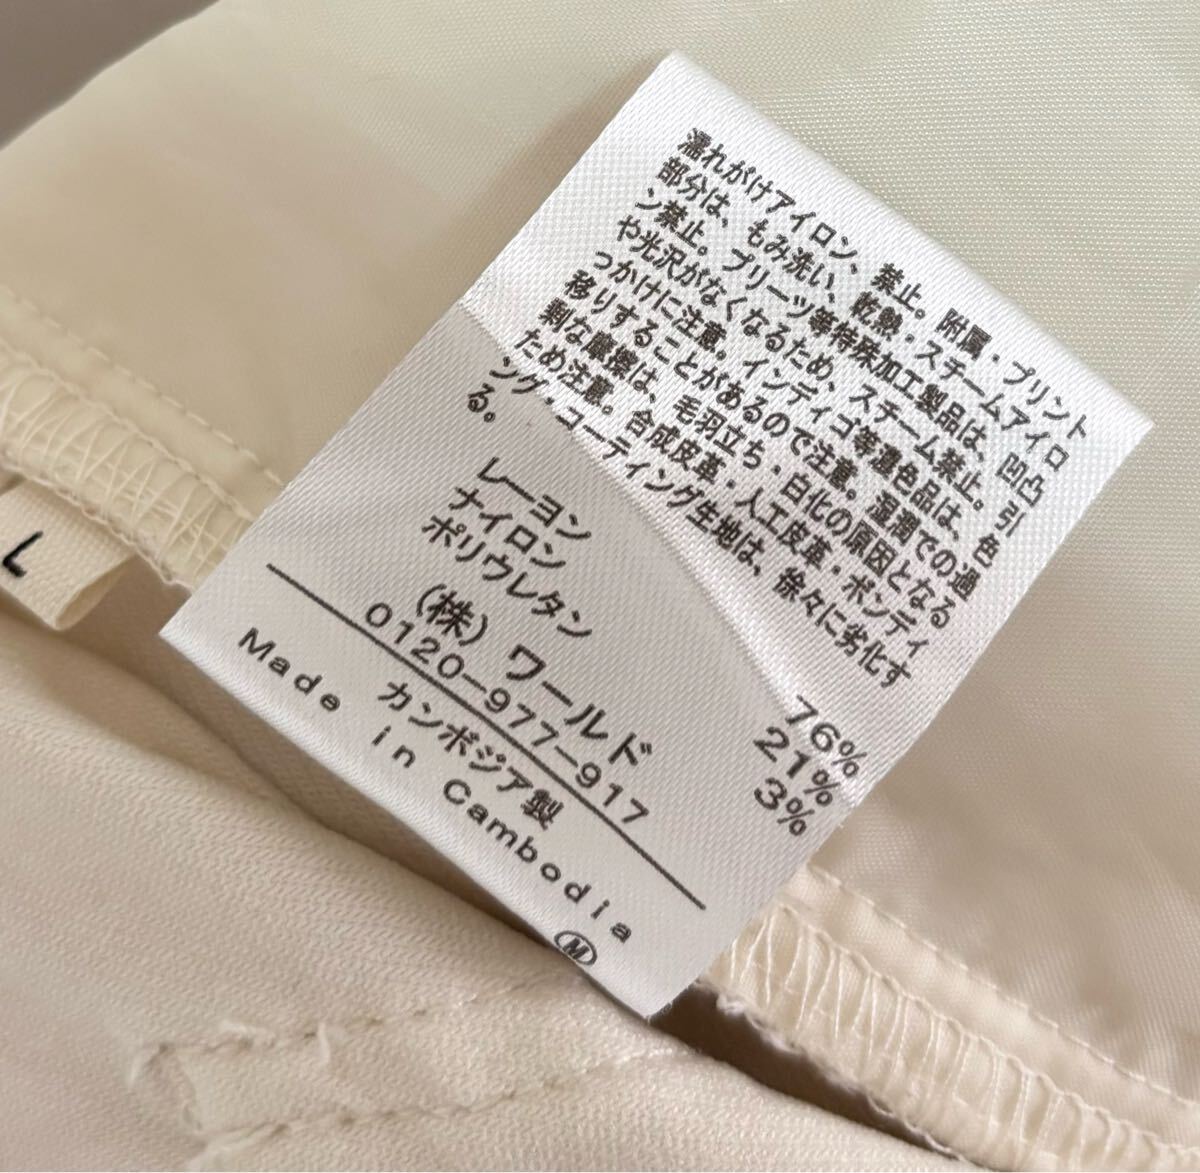 濡れがけアイロン、禁止。附属・プリント
部分は、もみ洗い、乾熱・スチームアイロ
ン禁止。プリーツ等特殊加工製品は、凹凸
や光沢がなくなるため、スチーム禁止。引
っかけに注意。インディゴ等濃色品は、色
移りすることがあるので注意。湿潤での過
剰な摩擦は、毛羽立ち・白化の原因となる
ため注意。合成皮革・人工皮革・ボンディ
ング・コーティング生地は、徐々に劣化す
る。
レーヨン 76%
ナイロン 21%
ポリウレタン 3%
(株)ワールド
0120-977-917
カンボジア製
Made in Cambodia
M
L